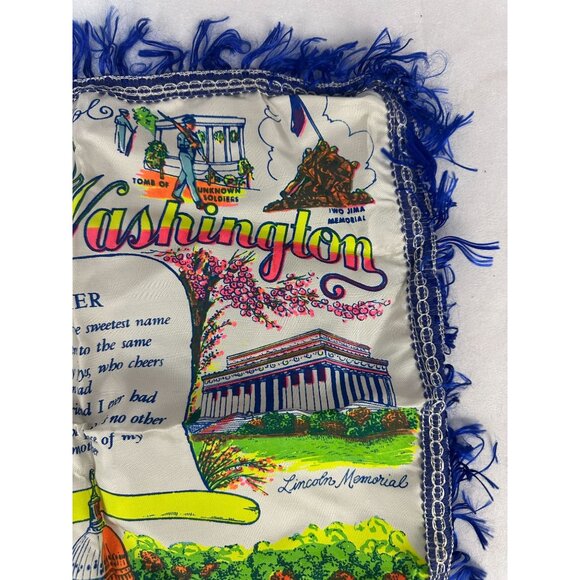 ol
TOMB OF UNKNOWN
SOLDIERS
IWO JIMA
MEMORIAL
Washington
ER
sweetest name
nto the same
who cheers
ad
I ever had
no other
of my
mother
Lincoln Memorial